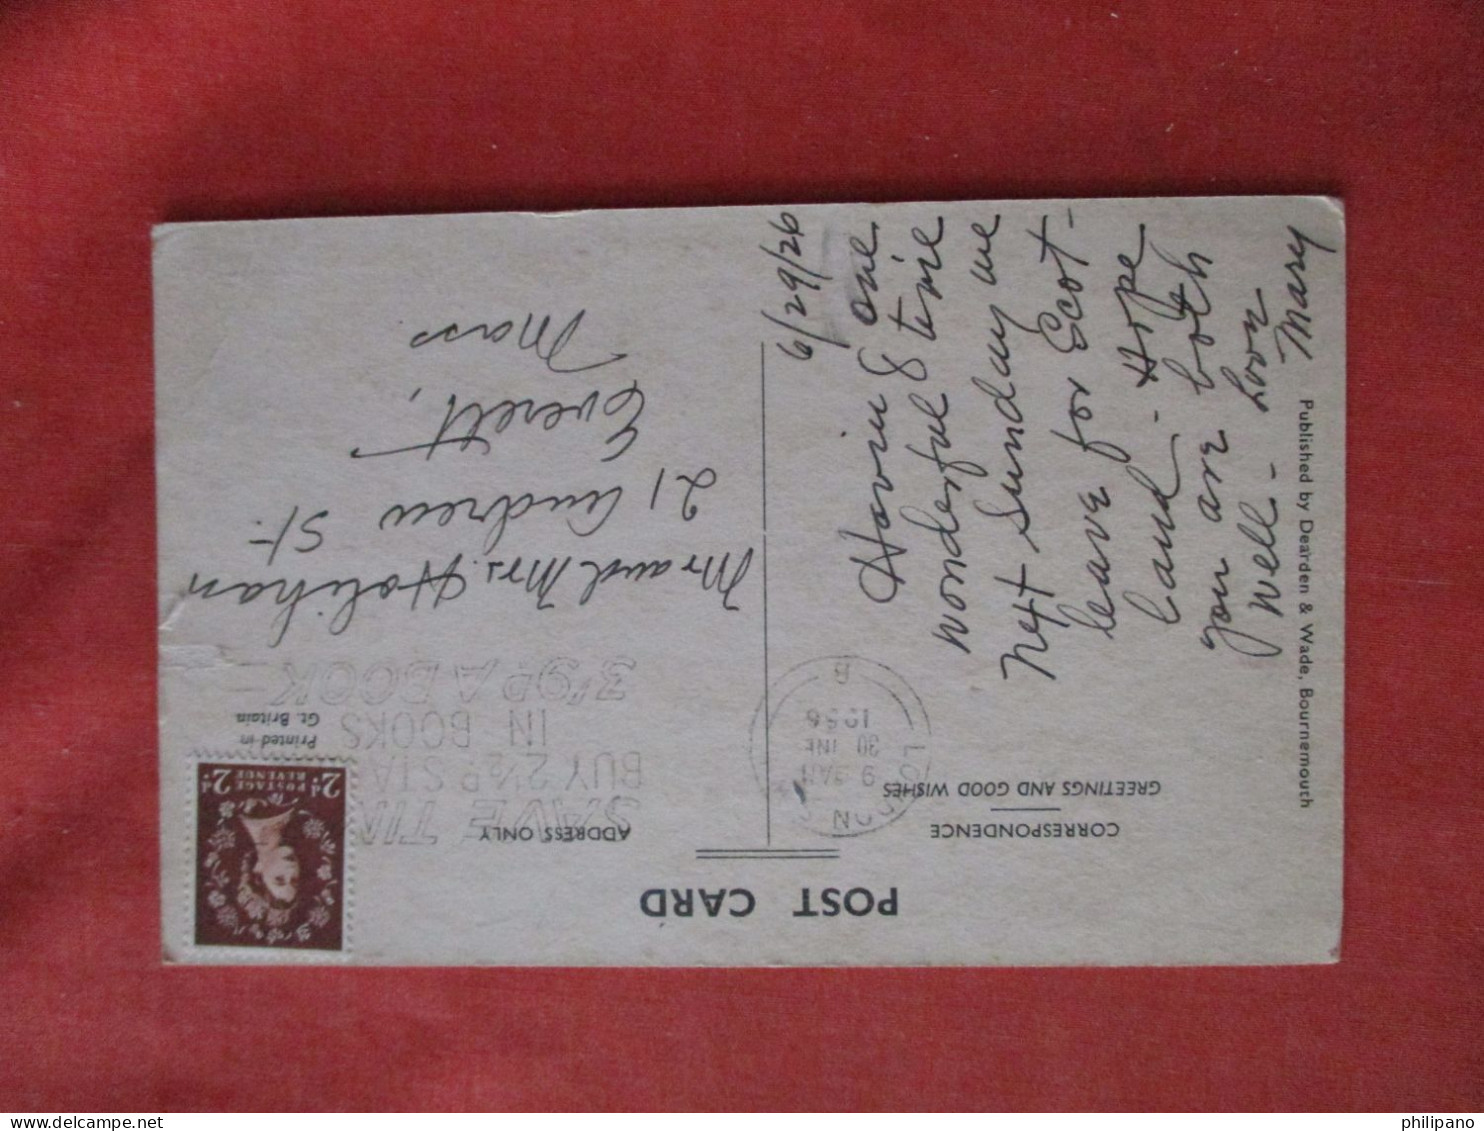 POST CARD
CORRESPONDENCE
GREETINGS AND GOOD WISHES
ADDRESS ONLY
2d POSTAGE REVENUE 2d
Printed in
Gt. Britain
LONDON
9
30 JNE
1956
B
SAVE TIM
BUY 2½D STA
IN BOOKS
3'9D A BOOK
6/29/26
Havin
wonderful time
Next Sunday we
leave for Scot-
land - Hope
you are both
well - Love
Mary
Mr and Mrs. Holihan
21 Andrew St.
Everett,
Mass
Published by Dearden & Wade, Bournemouth
philipano